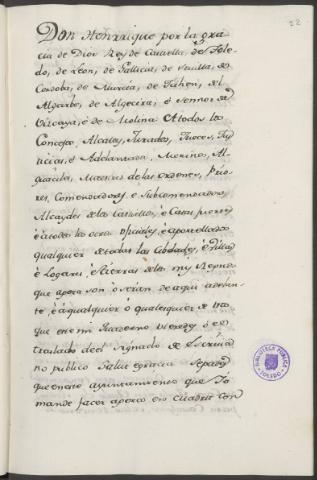 22
Don Henrrique por la gra
cia de Dios Rey de Castilla, de Tole
do, de Leon, de Gallicia, de Sevilla, de
Cordoba, de Murcia, de Jahen, del
Algarbe, de Algecira, è Sennor de
Vizcaya, è de Molina A todos los
Concejos, Alcaldes, Jurados, Jueces, Jus
ticias, è Adelantados, Merinos, Al
guaciles, Maestres de las Ordenes, Prio
res, Comendadores è Subcomendadores,
Alcaydes de los Castillos, è Casas fuertes
è a todos los otros oficiales, è aportellados
qualquier de todas las Cibdades, è Villas
è Logares, è tierras de los mis Reynos
que agora son ò seran de aqui adelan-
te, è à qualquier ò qualesquier de vos
que este mi Quaderno vieredes ò el
traslado de el signado de Escriba
no publico Salut è gracia Sepades
que en este ayuntamiento que Yo
mande facer agora en
BIBLIOTECA PUBLICA
TOLEDO